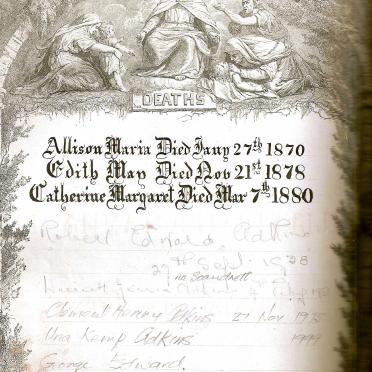 DEATHS
Allison Maria Died Jany 27th 1870
Edith May Died Nov 21st 1878
Catherine Margaret Died Mar 7th 1880
Robert Edward Adkins
27th Sept. 1928
Clement Henry Adkins 27 Nov 1935
Una Kemp Adkins 1999
George Edward